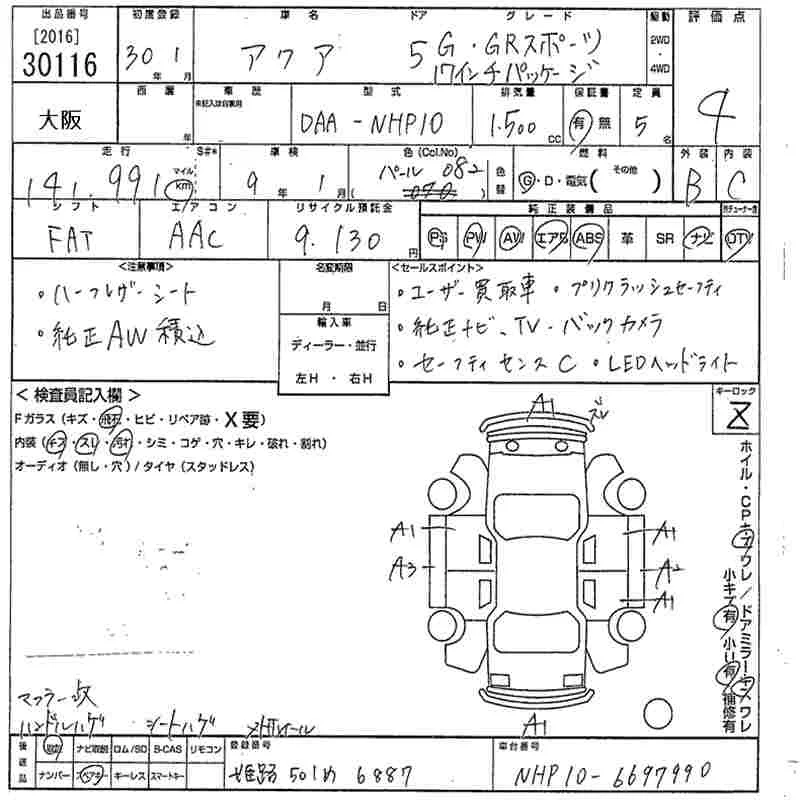 出品番号 初度登録 車名 ドア グレード 駆動 評価点
[2016]
30116 30年 1月 アクア 5 G・GRスポーツ 2WD・4WD 4
17インチパッケージ
西暦 車歴 型式 排気量 保証書 定員
未記入は自家用
大阪 年 DAA-NHP10 1.500 cc 有 無 5名
走行 S#* 車検 色(Col.No) 燃料 外装 内装
141.991 マイル km 9年 1月 パール 082 色替 G・D・電気( その他 ) B C
( 070 )
シフト エアコン リサイクル預託金 純正装備品
FAT AAC 9.130円 PS PW AW エアB ABS 革 SR ナビ TV
<注意事項> 名変期限 <セールスポイント>
・ハーフレザーシート ・ユーザー買取車 ・プリクラッシュセーフティ
月 日
・純正AW積込 輸入車 ・純正ナビ、TV・バックカメラ
ディーラー・並行
左H・右H ・セーフティセンスC ・LEDヘッドライト
<検査員記入欄> キーロック
Fガラス(キズ・飛石・ヒビ・リペア跡・X要)
内装(キズ・スレ・汚れ・シミ・コゲ・穴・キレ・破れ・割れ)
オーディオ(無し・穴)/タイヤ(スタッドレス)
A1 ズレ
A1 A1
A3 A2
A1
A1
ホイル・CPキズワレ/ドアミラーキズワレ
小キズ有 小U有 補修有
マフラー改
ハンドルハゲ シートハゲ
後送品 ナビ取説 ロム/SD B-CAS リモコン 登録番号 車台番号
ナンバー スペアキー キーレス スマートキー 姫路 501 め 6887 NHP10-6697990